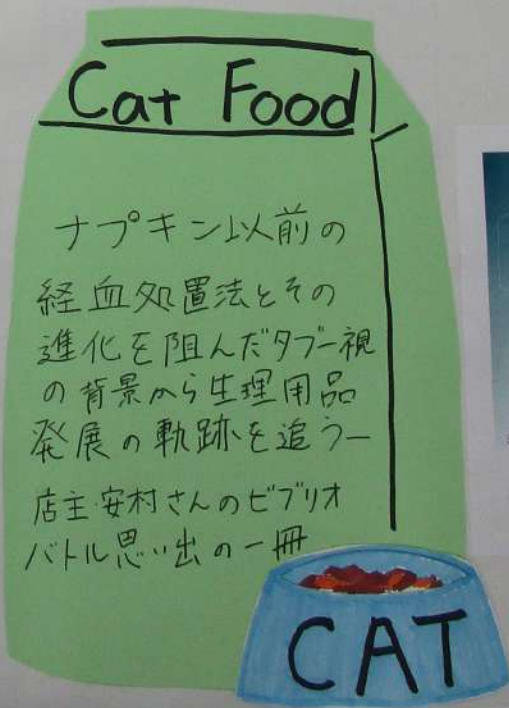 Cat Food
ナプキン以前の
経血処置法とその
進化を阻んだタブー視
の背景から生理用品
発展の軌跡を追うー
店主・安村さんのビブリオ
バトル思い出の一冊
CAT